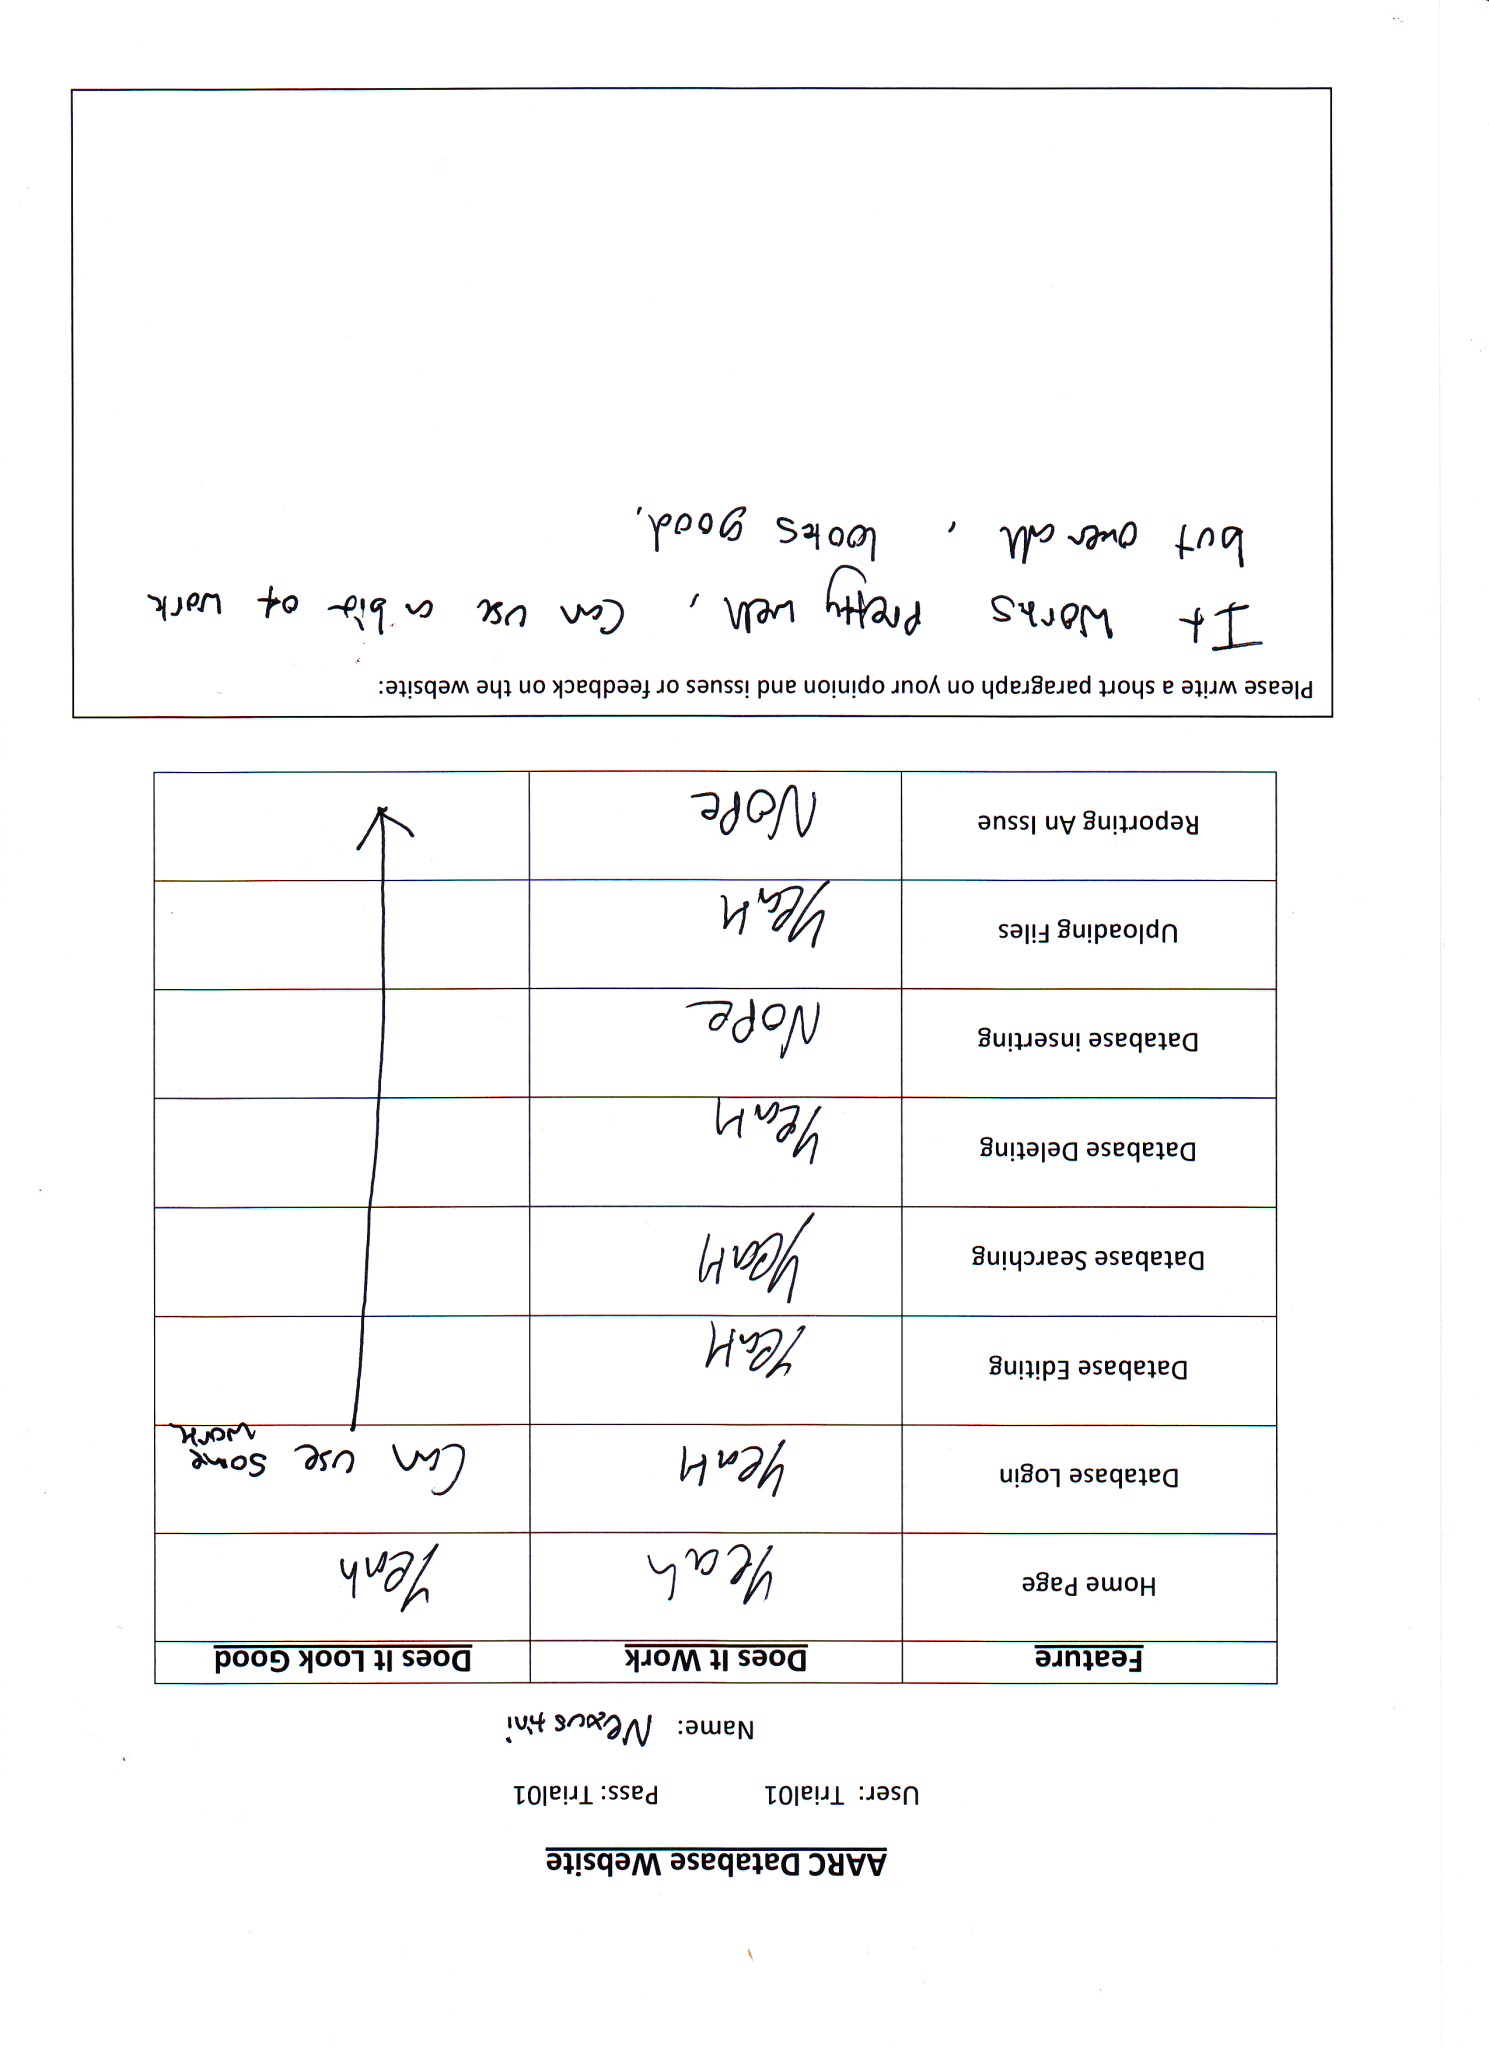 AARC Database Website
User: Trial01 Pass: Trial01
Name:
Feature Does It Work Does It Look Good
Home Page Yeah Yeah
Database Login YeaH Can use some work
Database Editing YeaH
Database Searching YeaH
Database Deleting YeaH
Database inserting NOPe
Uploading Files YeaH
Reporting An Issue NOPe
Please write a short paragraph on your opinion and issues or feedback on the website:
It works pretty well, Can use a bit of work
but over all, looks good.